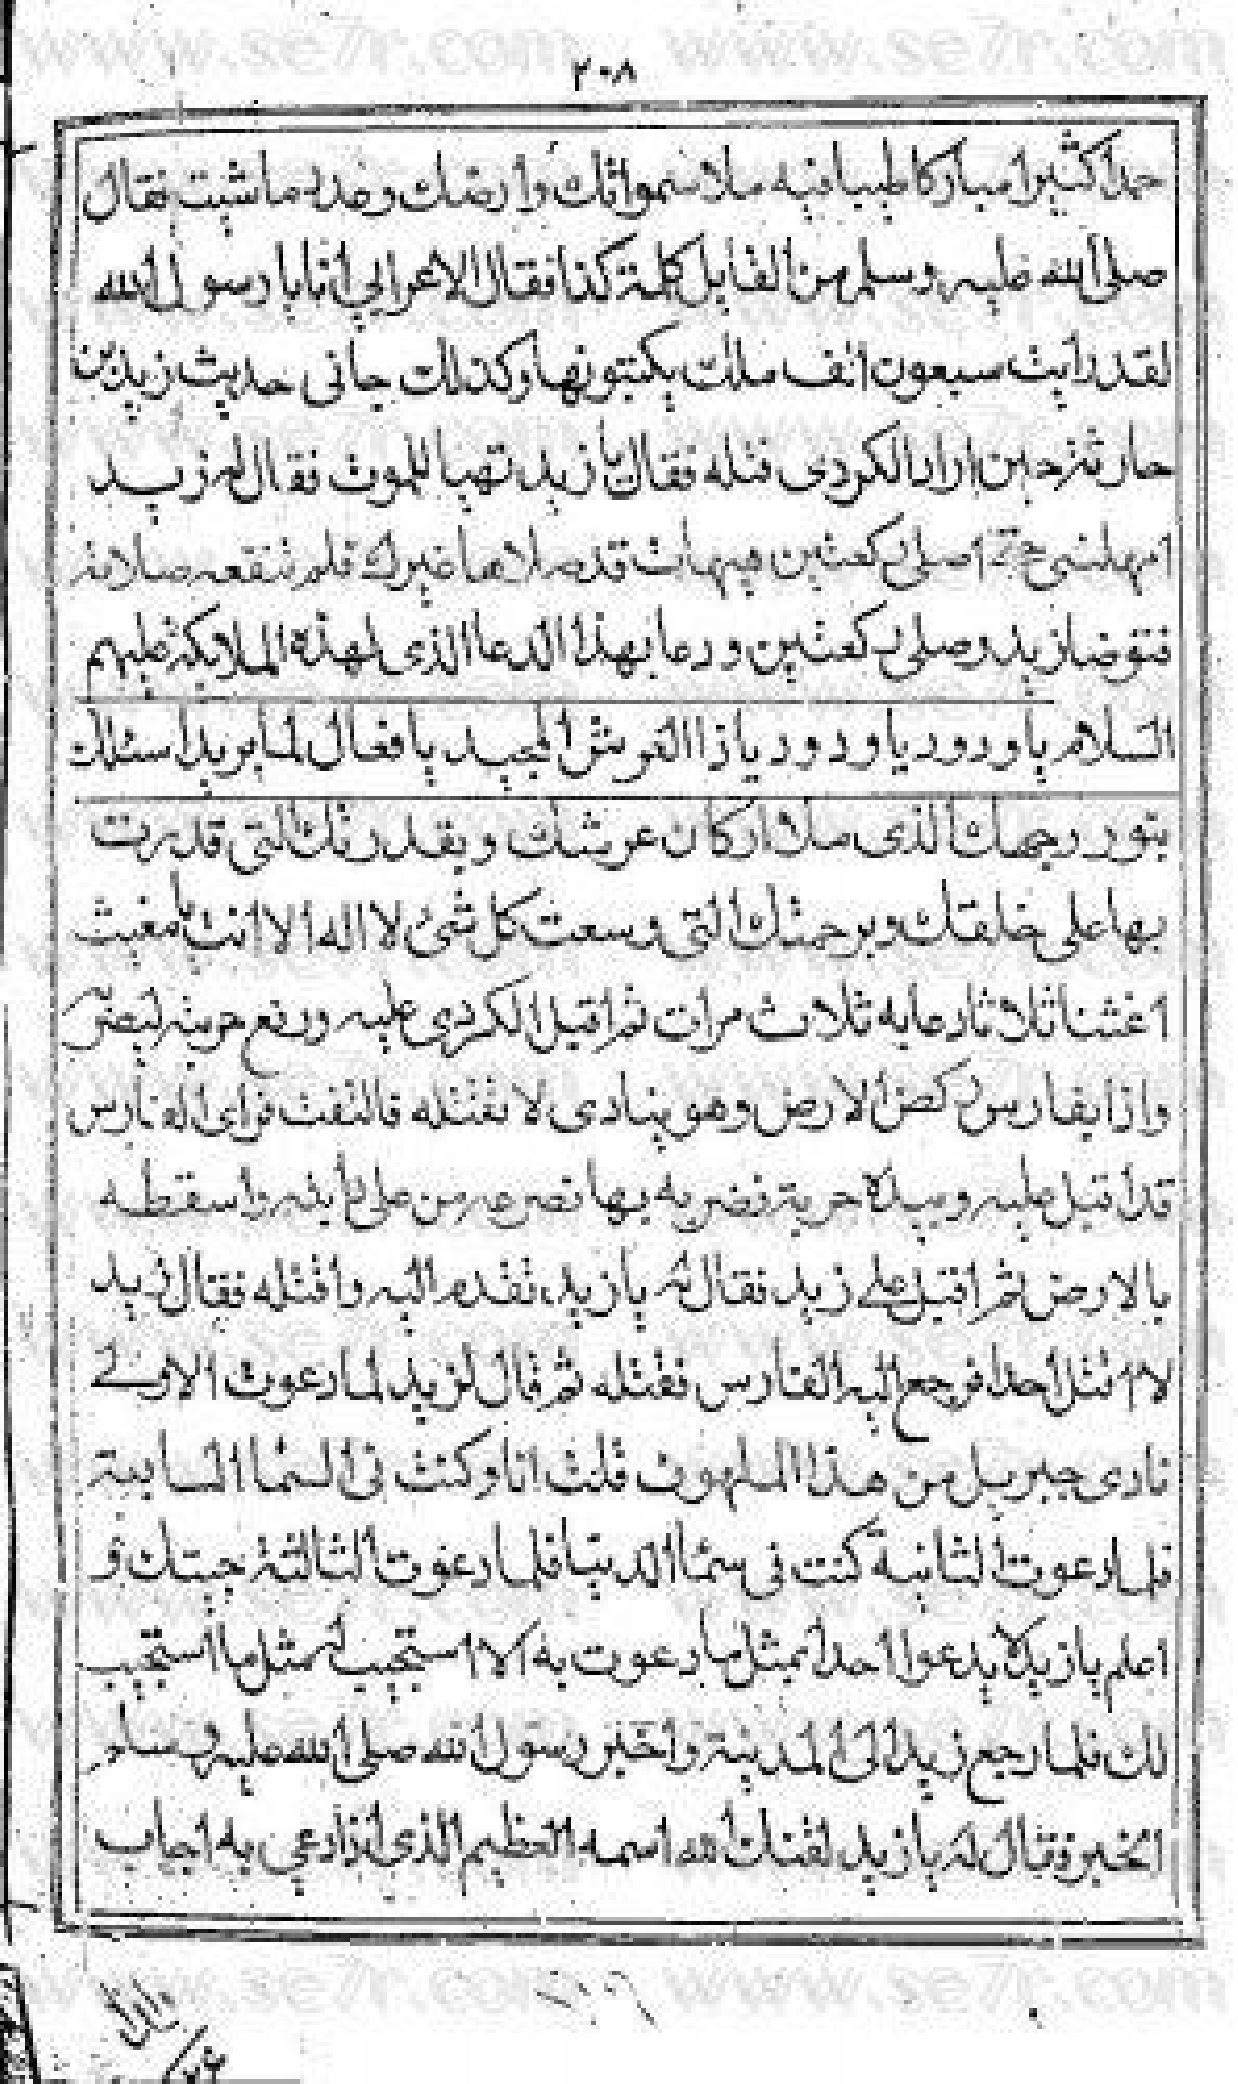 www.se7r.com www.se7r.com
٢٠٨
حمدا كثيرا مباركا طيبا فيه ملا سمواتك وارضك وعدد ماشيت فقال
صلى الله عليه وسلم من القايل كلمة كذا فقال الاعرابي انا يا رسول الله
لقد رايت سبعون الف ملك يكتبونها وكذلك جانى حديث زيد بن
حارثة حين اراد الكردى قتله فقال يا زيد تهيا للموت فقال له زيد
امهلنى حتى اصلى ركعتين هيهات قد صلاها غيرك فلم تنفعه صلاته
فتوضا زيد وصلى ركعتين ودعا بهذا الدعا الذى لهذه الملايكة عليهم
السلام يا ودود يا ودود يا ذا العرش المجيد يا فعال لما يريد اسئلك
بنور وجهك الذى ملا اركان عرشك وبقدرتك التى قدرت
بها على خلقك وبرحمتك التى وسعت كل شئ لا اله الا انت يا مغيث
اغثنا ثلاثا دعا به ثلاث مرات ثم اقبل الكردى عليه ورفع حربته ليضربه
واذا بفارس ركض الارض وهو ينادى لا تقتله فالتفت فراى الفارس
قد اقبل عليه وبيده حربة فضربه بها فصرعه من على دابته واسقطه
بالارض ثم اقبل على زيد فقال له يا زيد تقدم اليه واقتله فقال زيد
لا اقتل احدا فرجع اليه الفارس فقتله ثم قال لزيد لما دعوت الاولى
نادى جبريل من هذا الملهوف قلت انا وكنت فى السما السابعة
فلما دعوت الثانية كنت فى سما الدنيا فلما دعوت الثالثة جيتك و
اعلم يا زيد لا يدعوا احدا بمثل ما دعوت به الا استجيب له مثل ما استجيب
لك فلما رجع زيد الى المدينة واخبر رسول الله صلى الله عليه وسلم
الخبر وقال له يا زيد لقنك الله اسمه العظيم الذى اذا دعى به اجاب
www.se7r.com www.se7r.com
واذا